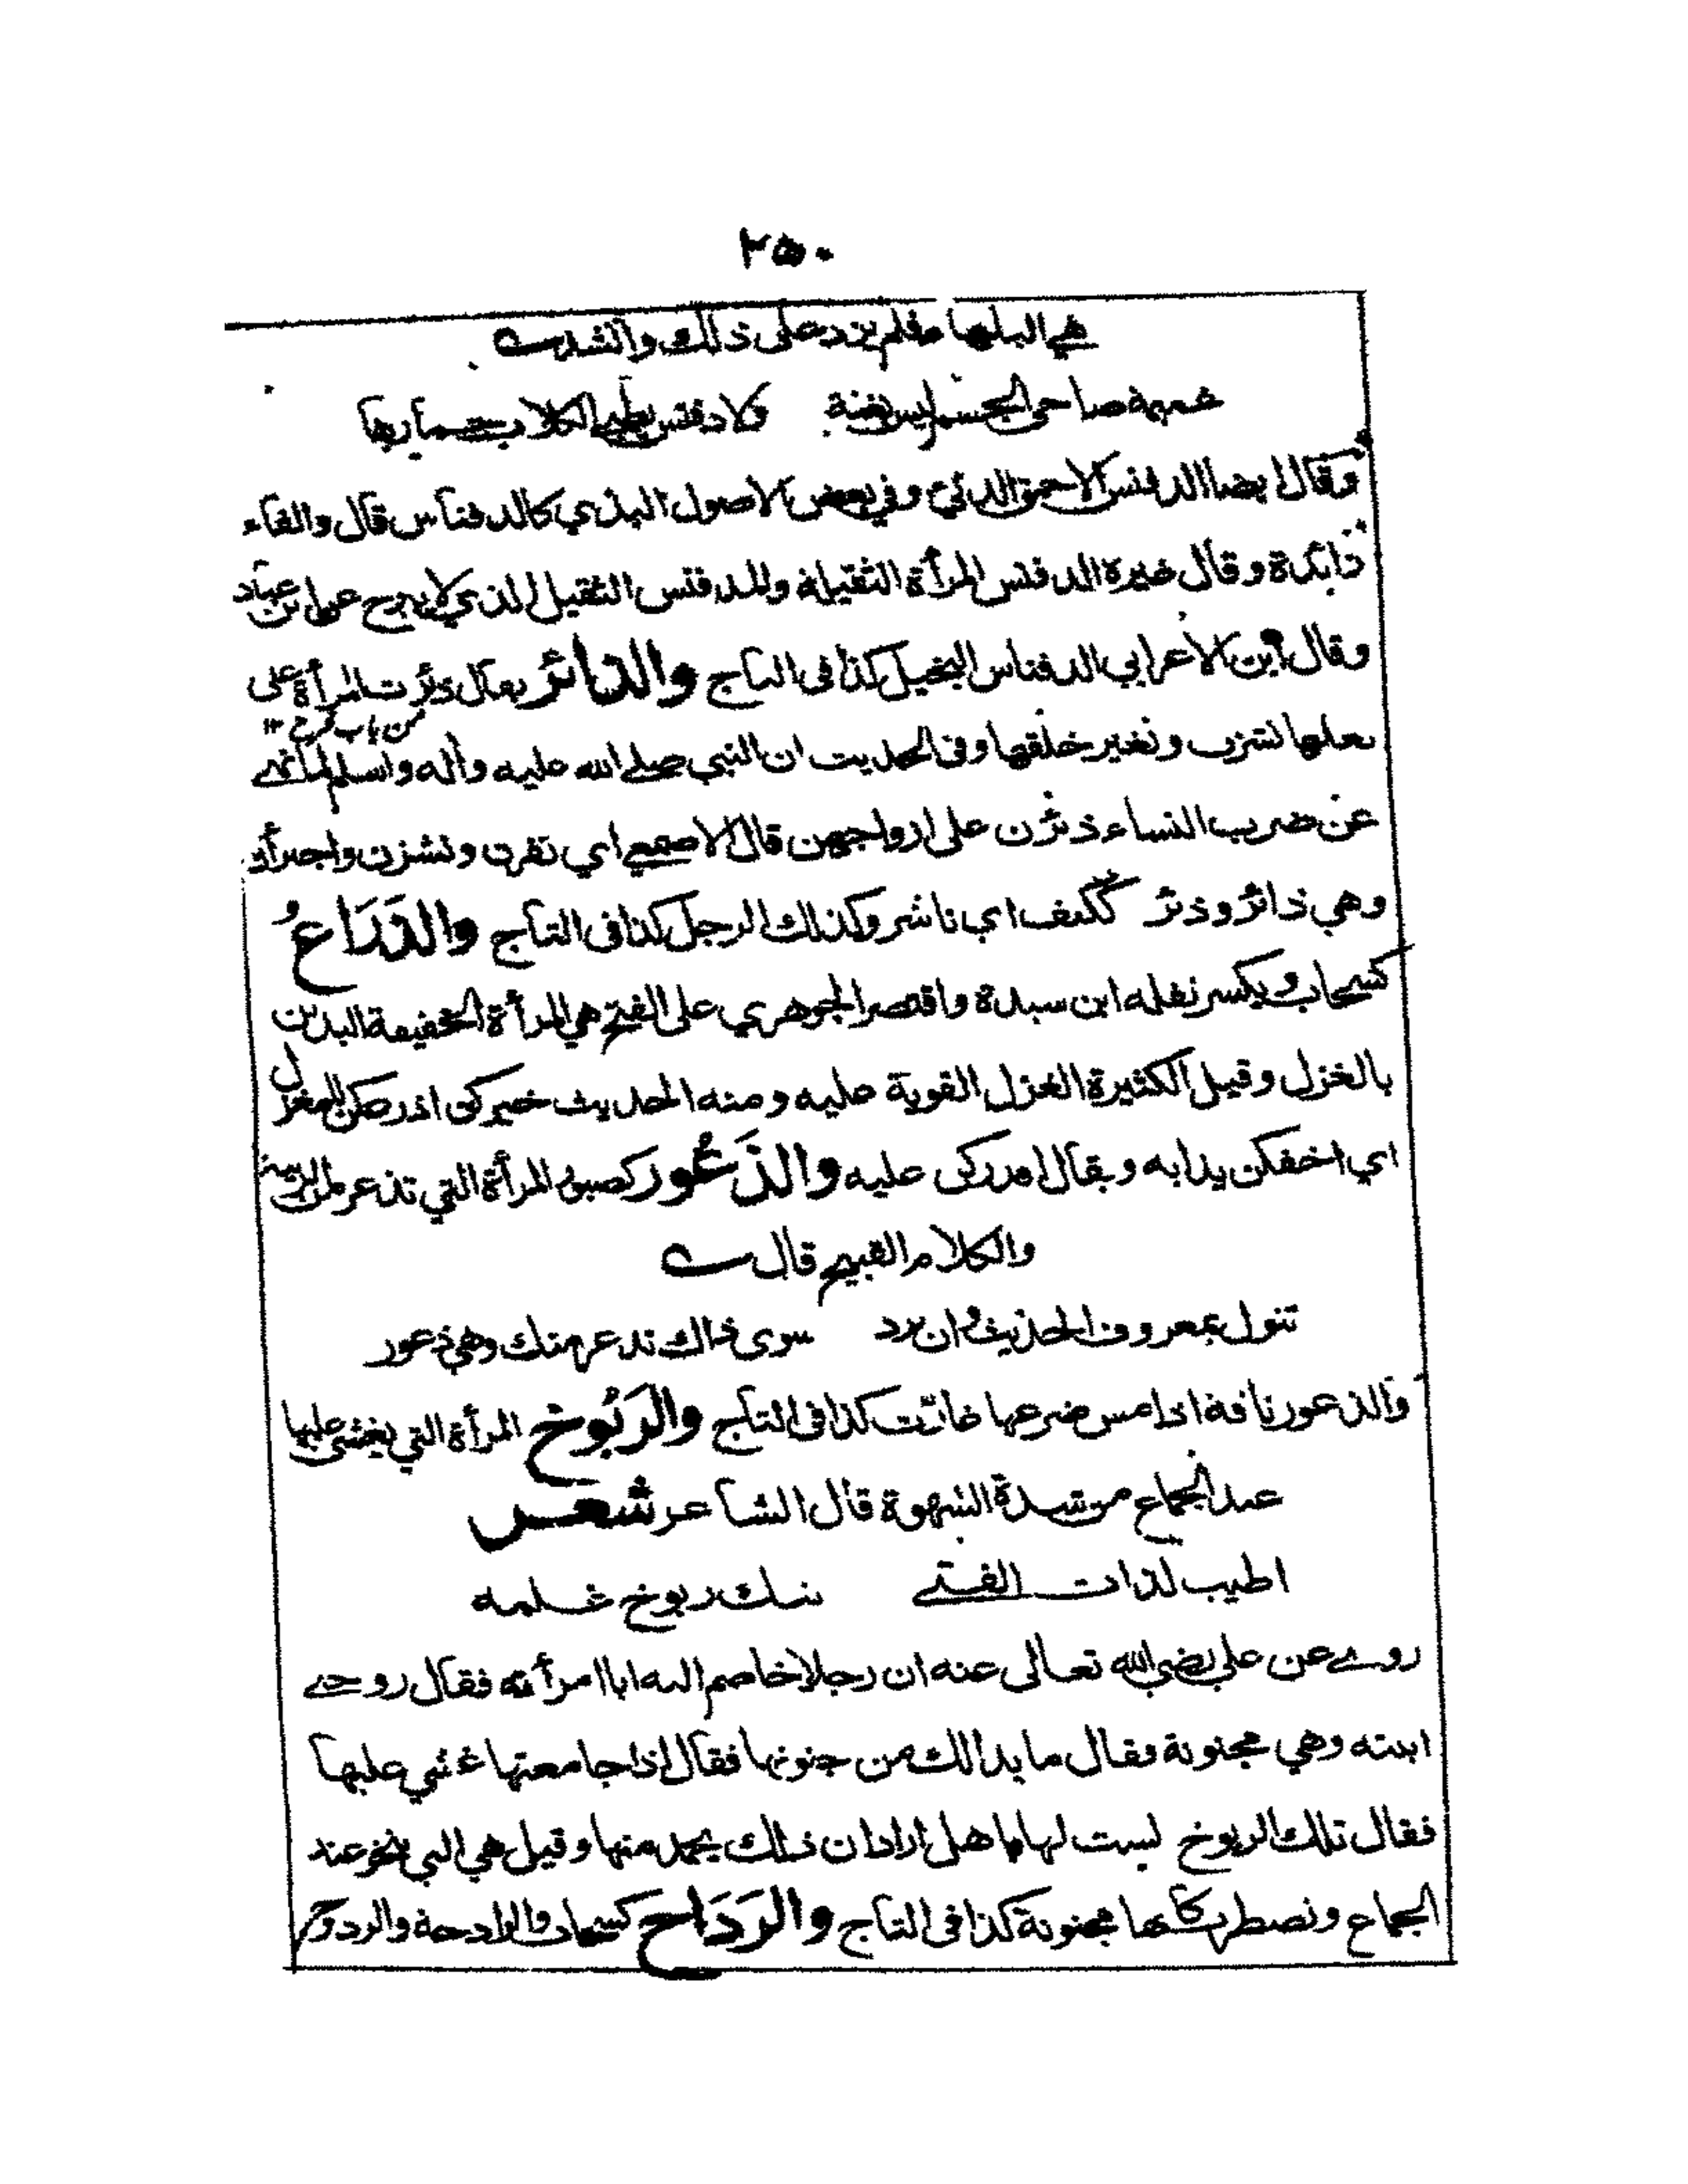 ٢٥٠
هي البلهاء فلم يزد على ذلك وانشد
عميمة ضاحي الجسم ليس بغثة ولا دفنس يطبي الكلاب خمارها
وقال ايضا الدفنس الاحمق الدني وفي بعض الاصول البذي كالدفناس قال والفاء
زائدة وقال غيره الدفنس المرأة الثقيلة والدفنس الثقيل الذي لا يبرح عن ابن عباد
وقال ابن الاعرابي الدفناس البخيل كذا في التاج والذائر يقال ذئرت المرأة على
من باب فرح ١٢
بعلها نشزت وتغير خلقها وفي الحديث ان النبي صلى الله عليه وآله وسلم لما نهى
عن ضرب النساء ذئرن على ازواجهن قال الاصمعي اي نفرن ونشزن واجترأن
وهي ذائر وذئر ككتف اي ناشز وكذلك الرجل كذا في التاج والذراع
كسحاب ويكسر نقله ابن سيدة واقتصر الجوهري على الفتح هي المرأة الخفيفة اليدين
بالغزل وقيل الكثيرة الغزل القوية عليه ومنه الحديث خيركن اذرعكن للمغزل
اي اخفكن يدا به ويقال اقدركن عليه والذعور كصبور المرأة التي تذعر من الريبة
والكلام القبيح قال
تنول بمعروف الحديث وان ترد سوى ذاك تذعر منك وهي ذعور
والذعور ناقة اذا مس ضرعها غارت كذا في التاج والربوخ المرأة التي يغشى عليها
عند الجماع من شدة الشهوة قال الشاعر شعر
اطيب لذات الفتى نيك ربوخ غلمه
روى عن علي رضي الله تعالى عنه ان رجلا خاصم اليه ابا امرأته فقال زوجني
ابنته وهي مجنونة فقال ما بدا لك من جنونها فقال اذا جامعتها غشي عليها
فقال تلك الربوخ ليست لها باهل اراد ان ذلك يحمد منها وقيل هي التي تنخر عند
الجماع وتضطرب كانها مجنونة كذا في التاج والرداح كسحاب والرادحة والردوح